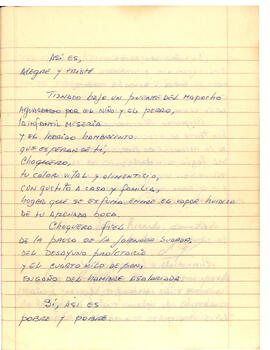 Así es,
Alegre y triste
Tiznado bajo un puente del Mapocho
aguardado por el niño y el perro,
la infantil miseria
y el ladrido hambriento
que esperan de ti,
Choquero,
tu calor vital y alimenticio,
con gustito a casa y familia,
hogar que se esfuma entre el vapor huidizo
de tu apenada boca.
Choquero fiel
de la pausa de la jornada
del desayuno proletario
y el cuarto kilo de pan,
engaño del hambre asalariada.
Sí, así es
pobre y pobre.